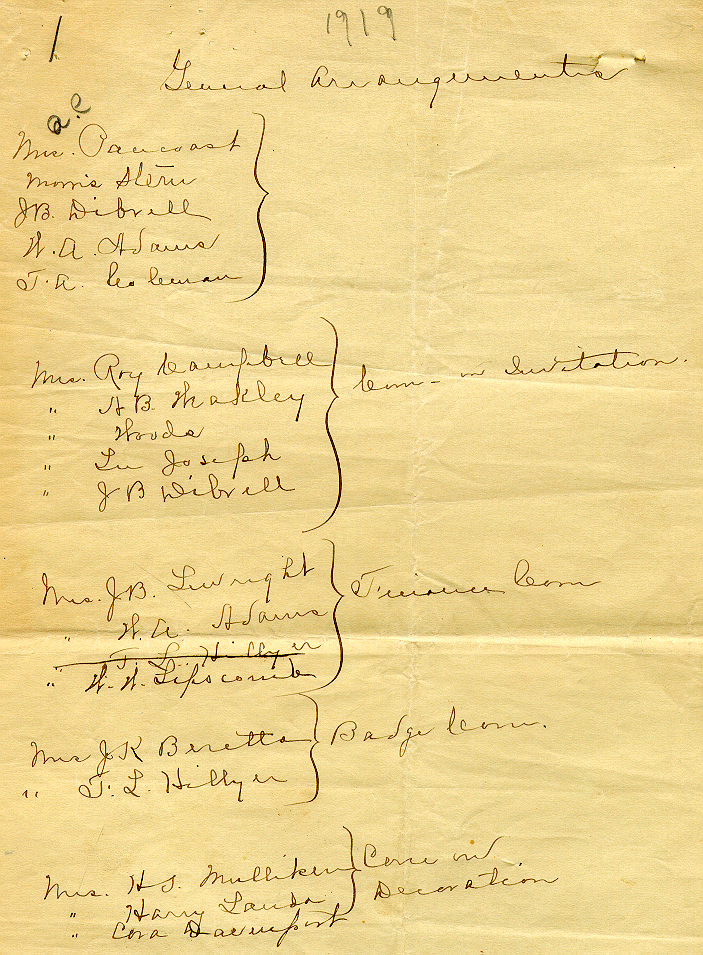 1
1919
General Arrangements
a.c
Mrs. Pancoast
Morris Stern
J.B. Dibrell
W. A. Adams
T. A. Coleman
Mrs. Roy Campbell
" A B. Weakley
" Woods
" Lee Joseph
" J B Dibrell
Com - on Invitation.
Mrs. J.B. Lewright
" W. A. Adams
T. L. Hillyer
" W. W. Lipscomb
Finance Com
Mrs J K Beretta
" T. L. Hillyer
Badge Com.
Mrs. H S. Milliken
" Harry Landa
" Cora Davenport
Com on
Decoration